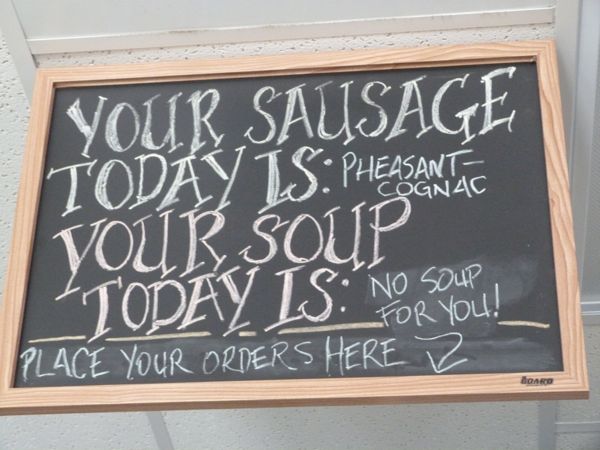 YOUR SAUSAGE
TODAY IS: PHEASANT-
COGNAC
YOUR SOUP
TODAY IS: NO SOUP
FOR YOU!
PLACE YOUR ORDERS HERE
BOARD